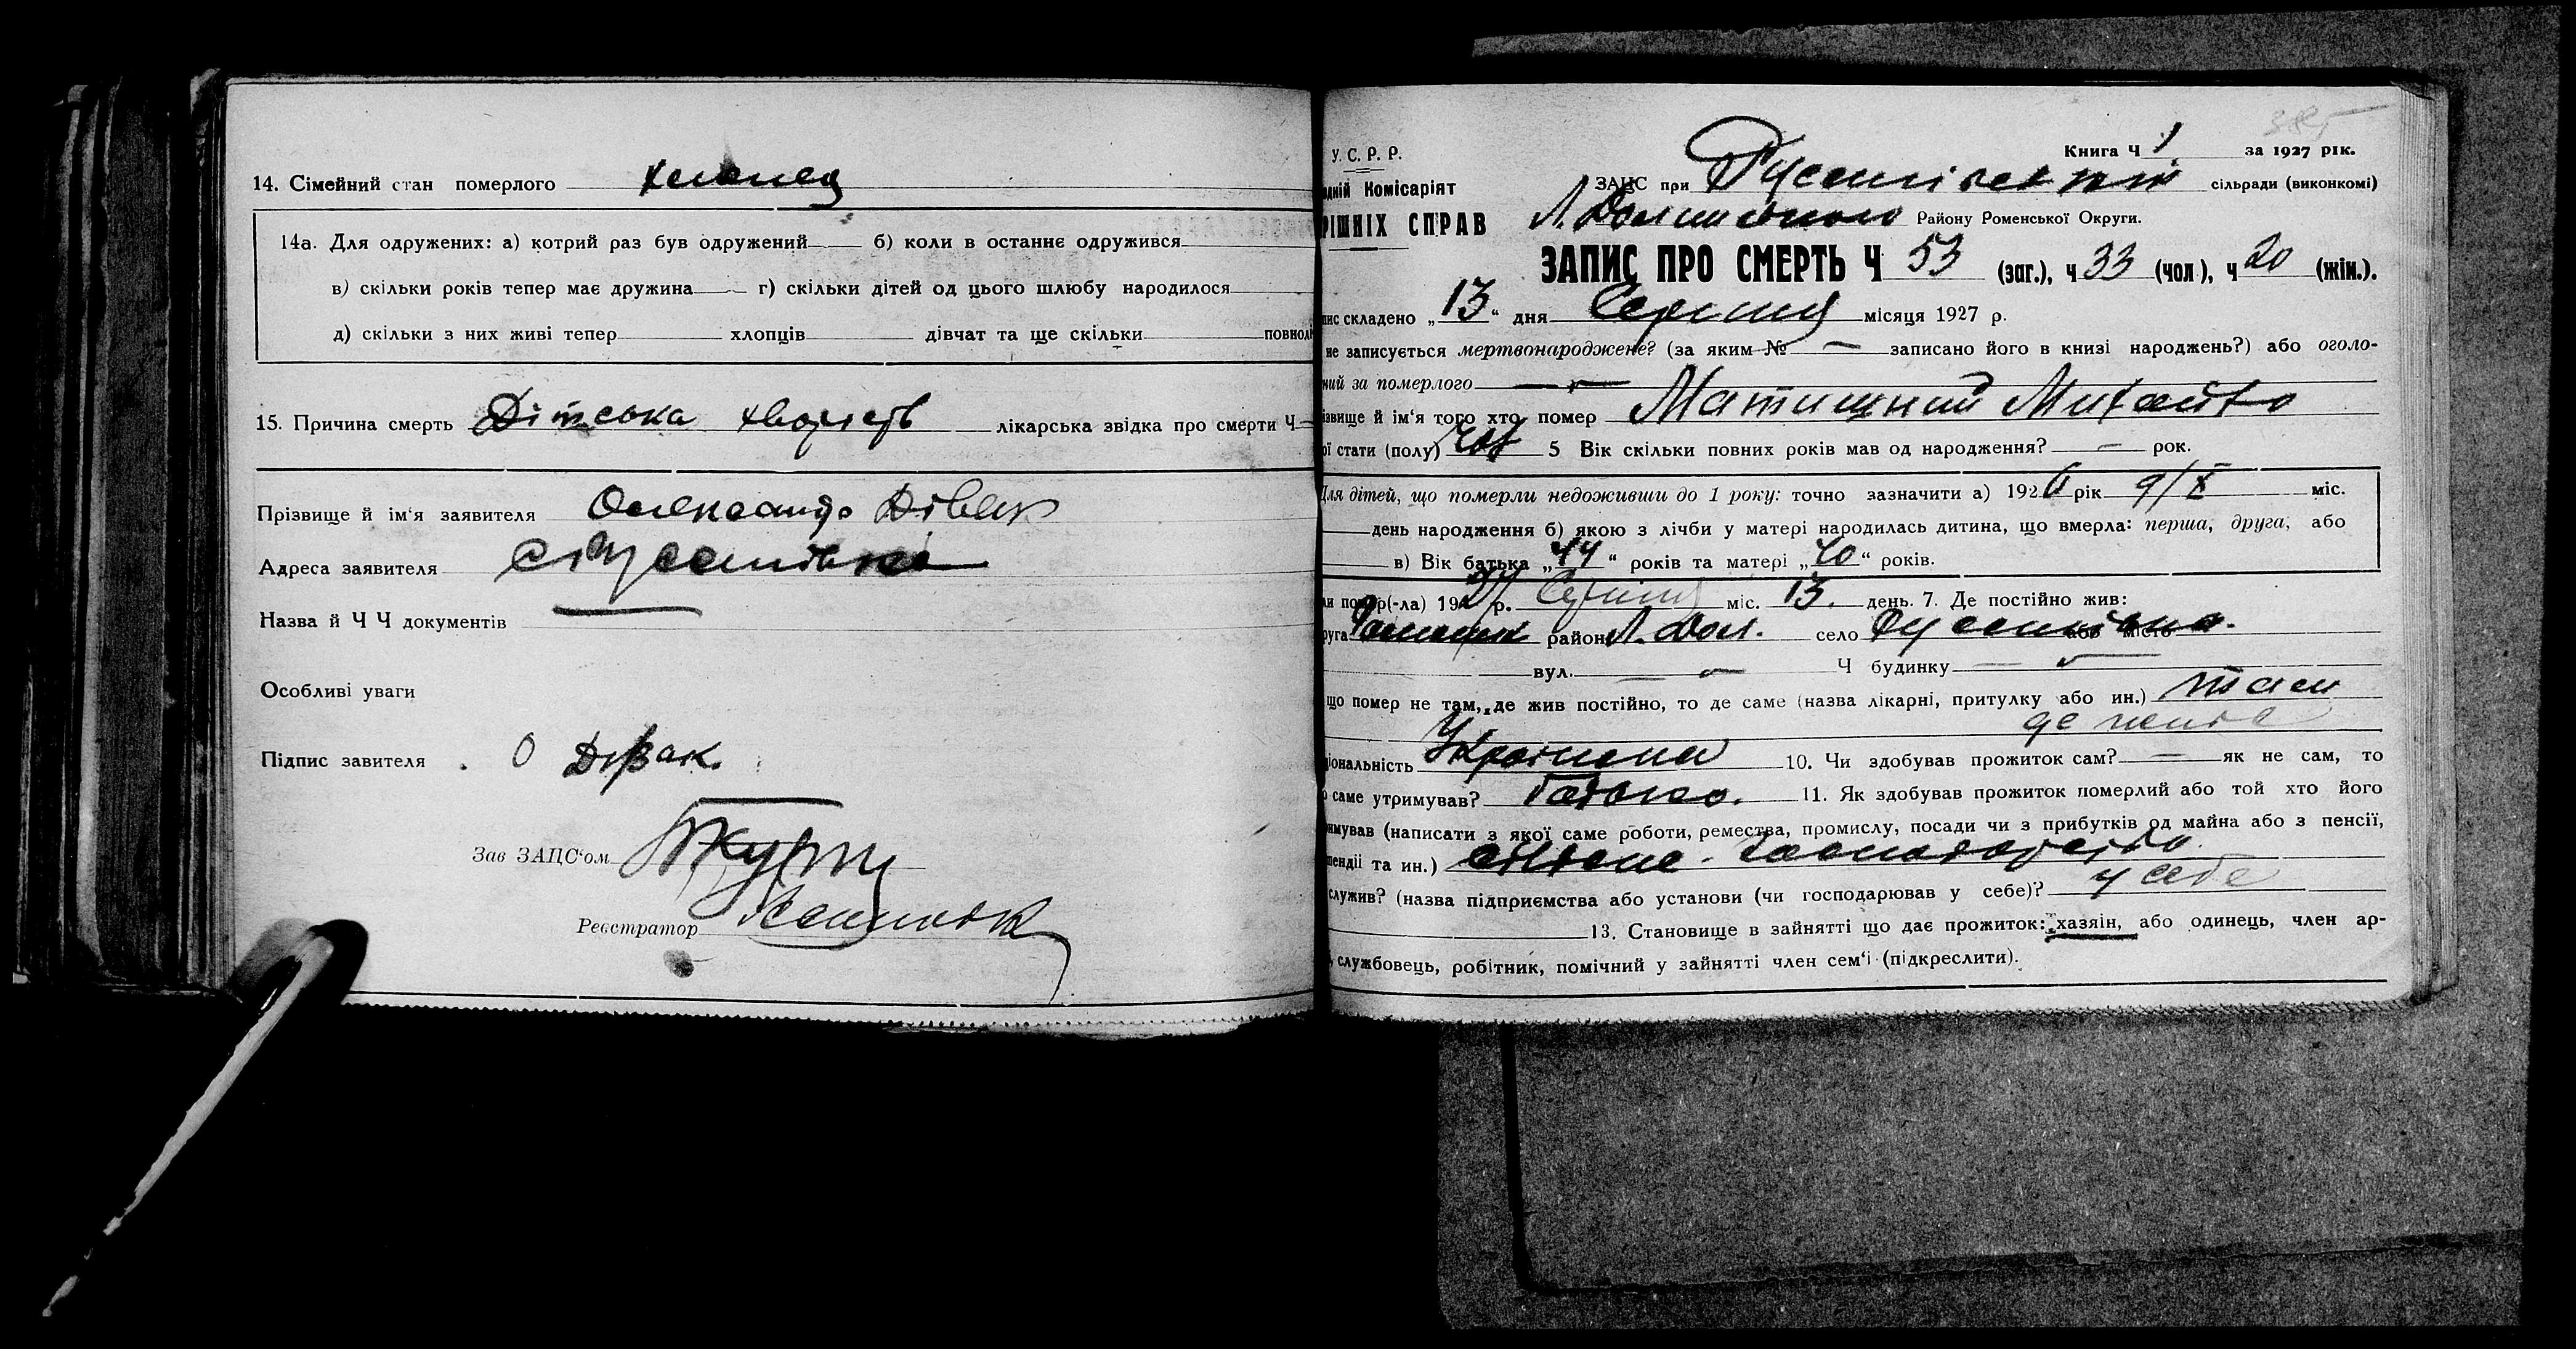 14. Сімейний стан померлого хлопец
14а. Для одружених: а) котрий раз був одружений б) коли в останнє одружився
в) скільки років тепер має дружина г) скільки дітей од цього шлюбу народилося
д) скільки з них живі тепер хлопців дівчат та ще скільки повнолі
15. Причина смерть Дітська хворість лікарська звідка про смерти Ч —
Прізвище й ім'я заявителя Олександр Дівак
Адреса заявителя с Русанівка
Назва й Ч Ч документів
Особливі уваги
Підпис завителя О Дівак.
Зав ЗАЦС'ом
Реєстратор
У. С. Р. Р.
Книга Ч 1 за 1927 рік.
одній Комісаріят
ЗАЦС при Русанівській сільради (виконкомі)
РІШНІХ СПРАВ Л. Долинського Району Роменської Округи.
ЗАПИС ПРО СМЕРТЬ Ч 53 (заг.), ч 33 (чол), ч 20 (жін.).
пис складено „13“ дня Серпня місяця 1927 р.
не записується мертвонароджене? (за яким № — записано його в книзі народжень?) або оголо-
ний за померлого — —
ізвище й ім'я того хто помер Матицький Михайло
ої стати (полу) чол 5 Вік скільки повних років мав од народження? — рок.
Для дітей, що померли недоживши до 1 року: точно зазначити а) 1926 рік 9/X міс.
день народження б) якою з лічби у матері народилась дитина, що вмерла: перша, друга, або
в) Вік батька „44“ років та матері „40“ років.
ли помер(-ла) 1927 р. Серпня міс. 13. день. 7. Де постійно жив:
руга Роменськ район Л. Дол. село Русанівка. або місто
вул. — Ч будинку —
що помер не там, де жив постійно, то де саме (назва лікарні, притулку або ин.) там
де жив
ціональність Українець 10. Чи здобував прожиток сам? — як не сам, то
о саме утримував? Батько. 11. Як здобував прожиток померлий або той хто його
имував (написати з якої саме роботи, ремества, промислу, посади чи з прибутків од майна або з пенсії,
пендії та ин.) сільське господарство
служив? (назва підприємства або установи (чи господарював у себе)? у себе
13. Становище в зайнятті що дає прожиток: хазяін, або одинець, член ар-
, службовець, робітник, помічний у зайнятті член сем'і (підкреслити).